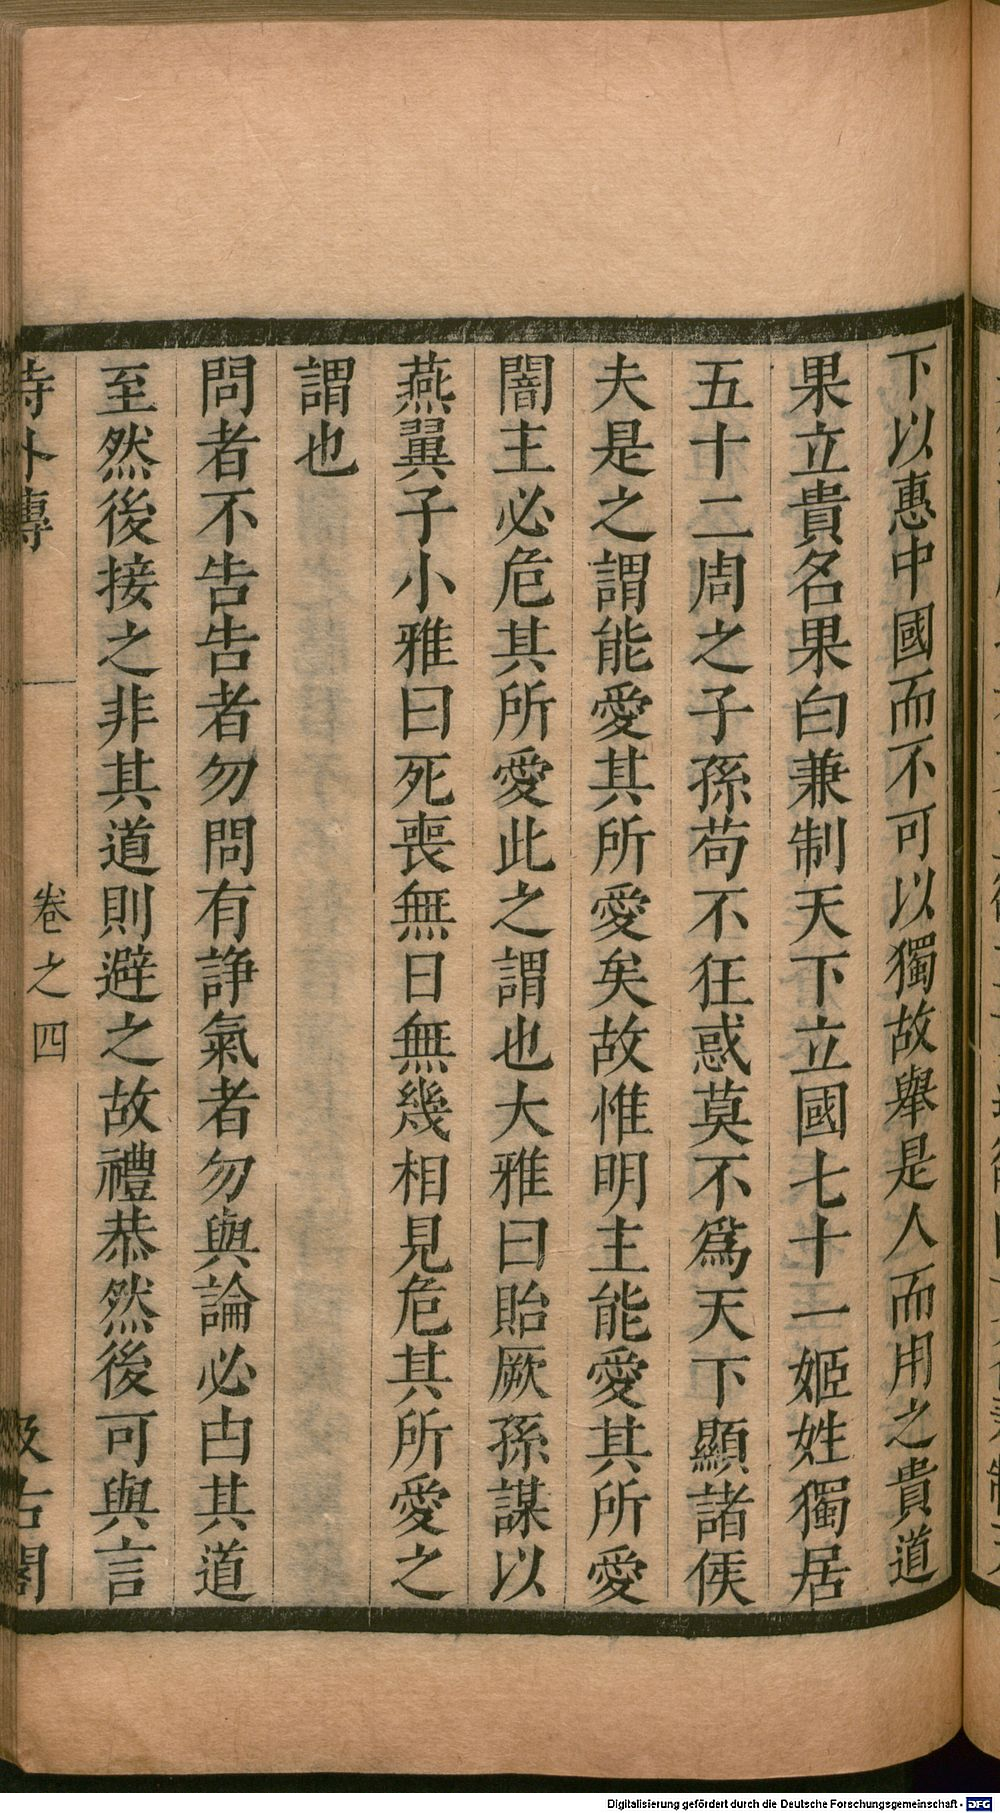 下以惠中國而不可以獨故舉是人而用之貴道
果立貴名果白兼制天下立國七十一姬姓獨居
五十二周之子孫苟不狂惑莫不爲天下顯諸侯
夫是之謂能愛其所愛矣故惟明主能愛其所愛
闇主必危其所愛此之謂也大雅曰貽厥孫謀以
燕翼子小雅曰死喪無日無幾相見危其所愛之
謂也
問者不告告者勿問有諍氣者勿與論必由其道
至然後接之非其道則避之故禮恭然後可與言
詩外傳
卷之四
汲古閣
Digitalisierung gefördert durch die Deutsche Forschungsgemeinschaft - DFG